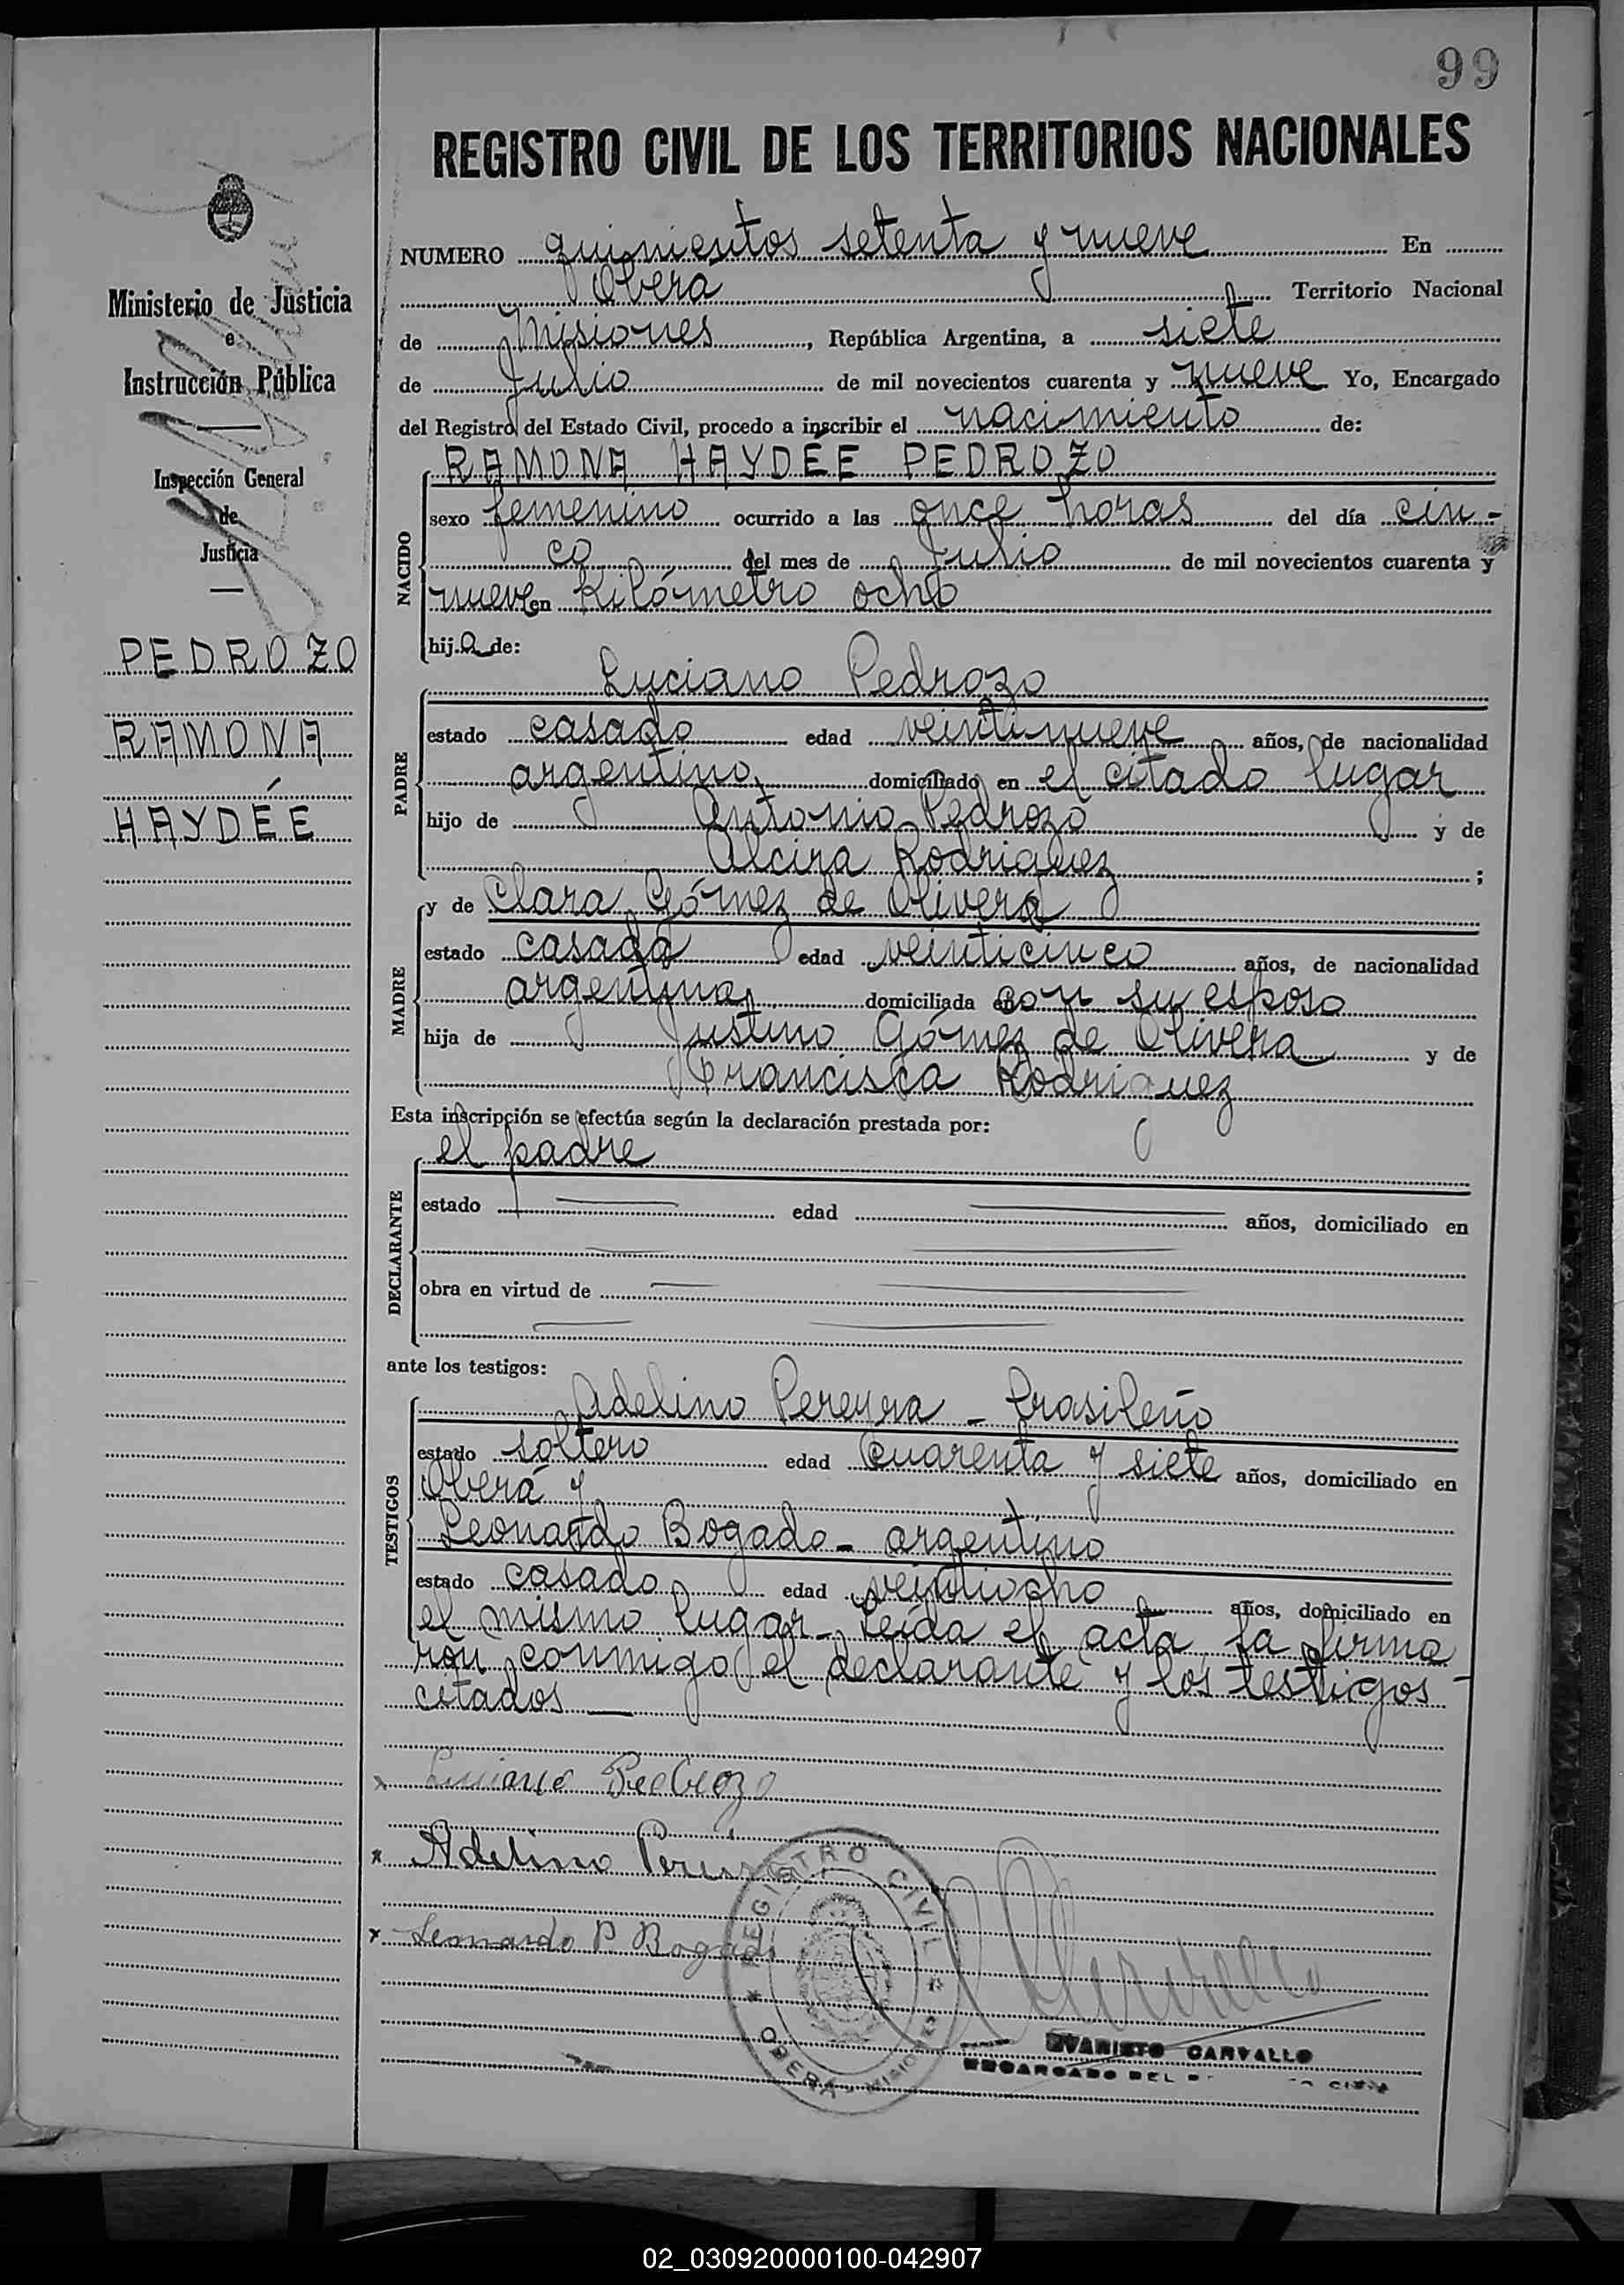 99
REGISTRO CIVIL DE LOS TERRITORIOS NACIONALES
Ministerio de Justicia
e
Instrucción Pública
Inspección General
de
Justicia
PEDROZO
RAMONA
HAYDÉE
NUMERO quinientos setenta y nueve En
Oberá Territorio Nacional
de Misiones, República Argentina, a siete
de Julio de mil novecientos cuarenta y nueve Yo, Encargado
del Registro del Estado Civil, procedo a inscribir el nacimiento de:
RAMONA HAYDÉE PEDROZO
NACIDO
sexo femenino ocurrido a las once horas del día cin-
co del mes de Julio de mil novecientos cuarenta y
nueve en Kilómetro ocho
hija de:
Luciano Pedrozo
PADRE
estado casado edad veintinueve años, de nacionalidad
argentino, domiciliado en el citado lugar
hijo de Antonio Pedrozo y de
Alcira Rodriguez ;
y de Clara Gómez de Olivera
MADRE
estado casada edad veinticinco años, de nacionalidad
argentina, domiciliada con su esposo
hija de Justino Gómez de Olivera y de
Francisca Rodriguez
Esta inscripción se efectúa según la declaración prestada por:
el padre
DECLARANTE
estado edad años, domiciliado en
obra en virtud de
ante los testigos:
Adelino Pereyra - brasileño
TESTIGOS
estado soltero edad cuarenta y siete años, domiciliado en
Oberá y
Leonardo Bogado - argentino
estado casado edad veintiocho años, domiciliado en
el mismo lugar - Leída el acta la firma
ron conmigo el declarante y los testigos
citados
x Luciano Pedrozo
x Adelino
x Leonardo P. Bogado
REGISTRO CIVIL
OBERÁ - MISIONES
EVARISTO CARVALLO
ENCARGADO DEL CIVIL
02_030920000100-042907